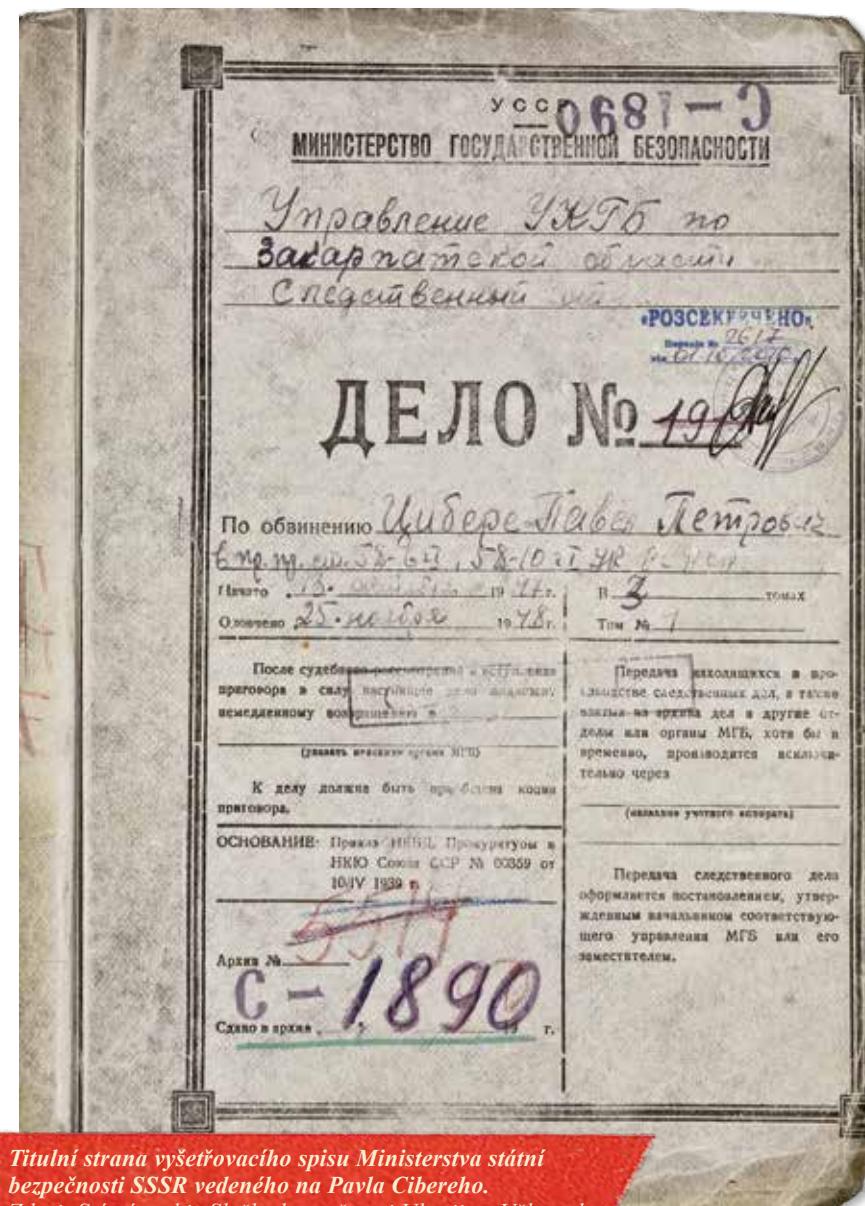 УССР
С-1890
МИНИСТЕРСТВО ГОСУДАРСТВЕННОЙ БЕЗОПАСНОСТИ
Управление УКГБ по
Закарпатской области
Следственный
«РОЗСЕКРЕЧЕНО»
2617
ДЕЛО №
По обвинению Цибере Павел Петрович
в пр. пр. ст. 58-6 , 58-10 УК
Начато 13. 19 г.
В 3 томах
Окончено 25. ноября 1948 г.
Том № 1
После судебного рассмотрения и вступления
приговора в силу настоящее дело подлежит
немедленному возвращению в
(указать название органа МГБ)
К делу должна быть приобщена копия
приговора.
ОСНОВАНИЕ: Приказ НКВД, Прокуратуры и
НКЮ Союза ССР № 00359 от
10/IV 1939 г.
Архив №
С-1890
Сдано в архив 19 г.
Передача находящихся в про-
изводстве следственных дел, а также
взятых из архива дел в другие от-
делы или органы МГБ, хотя бы и
временно, производится исключи-
тельно через
(название учетного аппарата)
Передача следственного дела
оформляется постановлением, утвер-
жденным начальником соответствую-
щего управления МГБ или его
заместителем.
Titulní strana vyšetřovacího spisu Ministerstva státní
bezpečnosti SSSR vedeného na Pavla Cibereho.